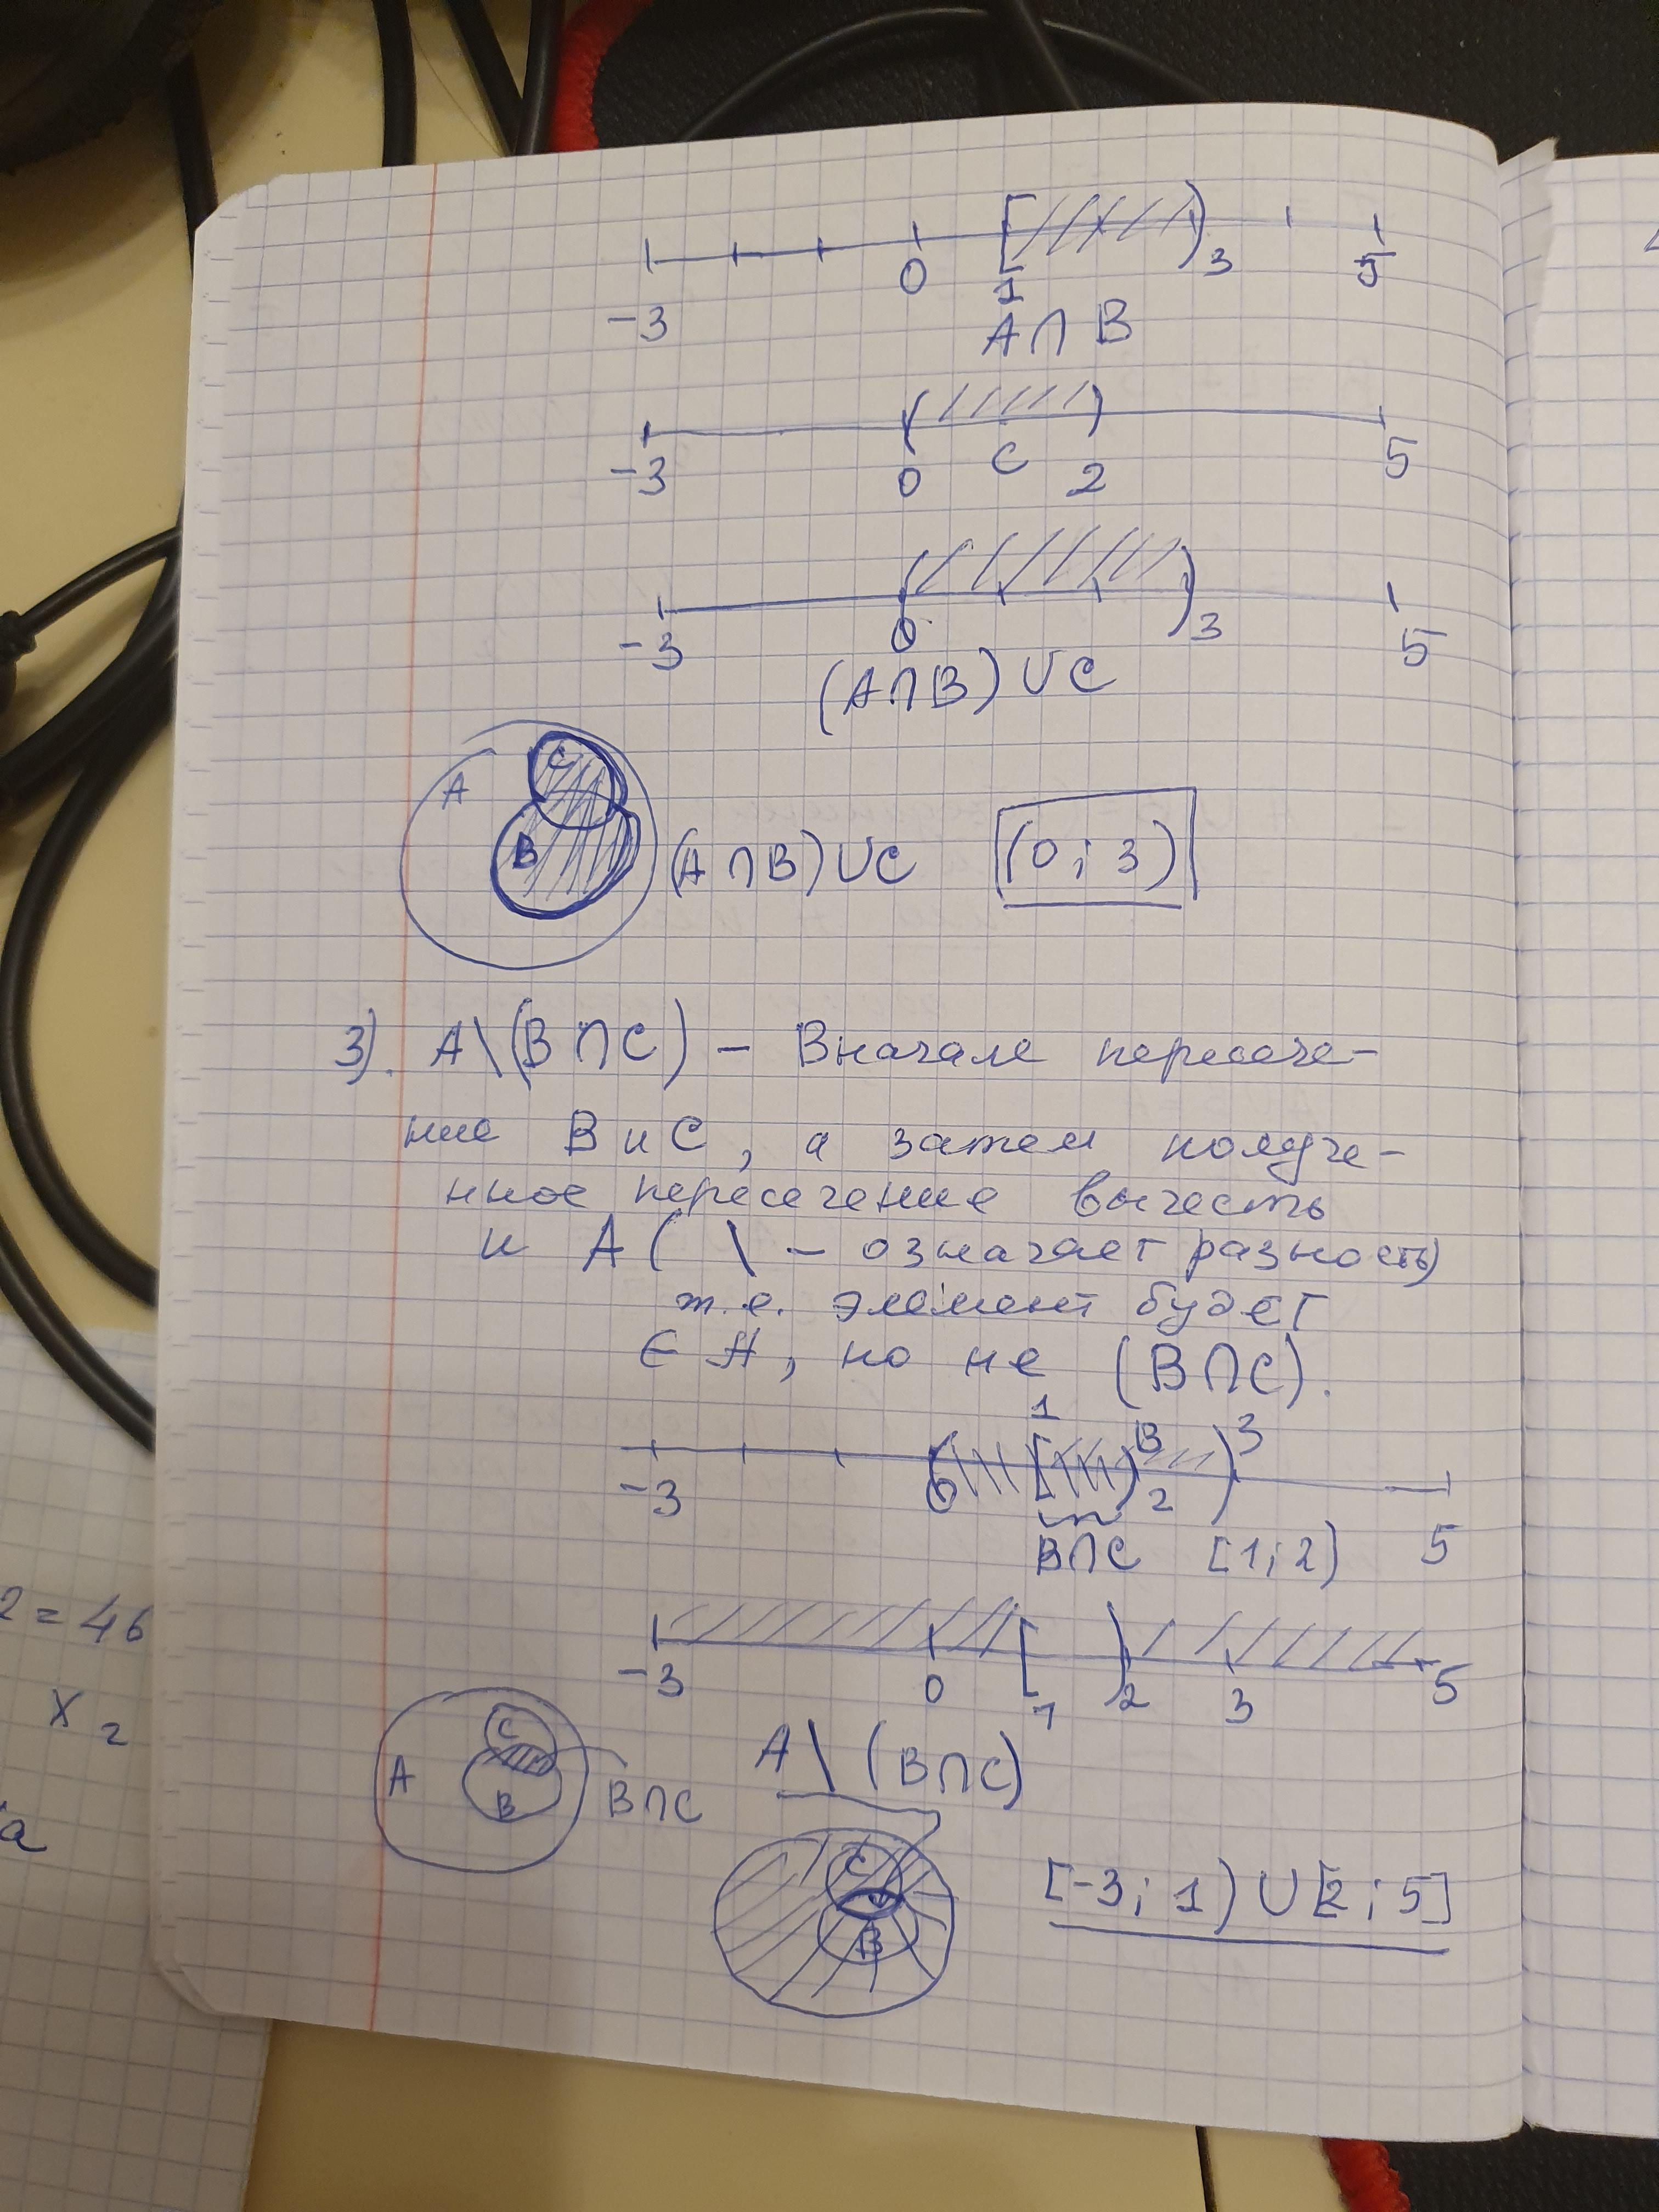 -3 0 1 3 5
A∩B
-3 0 C 2 5
-3 0 3 5
(A∩B)∪C
A C B (A∩B)∪C (0; 3)
3). A\(B∩C) – Вначале пересече-
ние B и C, а затем получе-
нное пересечение вычесть
и A ( \ – означает разность)
т.е. элемент будет
∈ A, но не (B∩C).
1 B 3
-3 0 2
B∩C [1; 2) 5
-3 0 1 2 3 5
A C B B∩C A\(B∩C)
C B [-3; 1)∪[2; 5]
2=46
x2
a